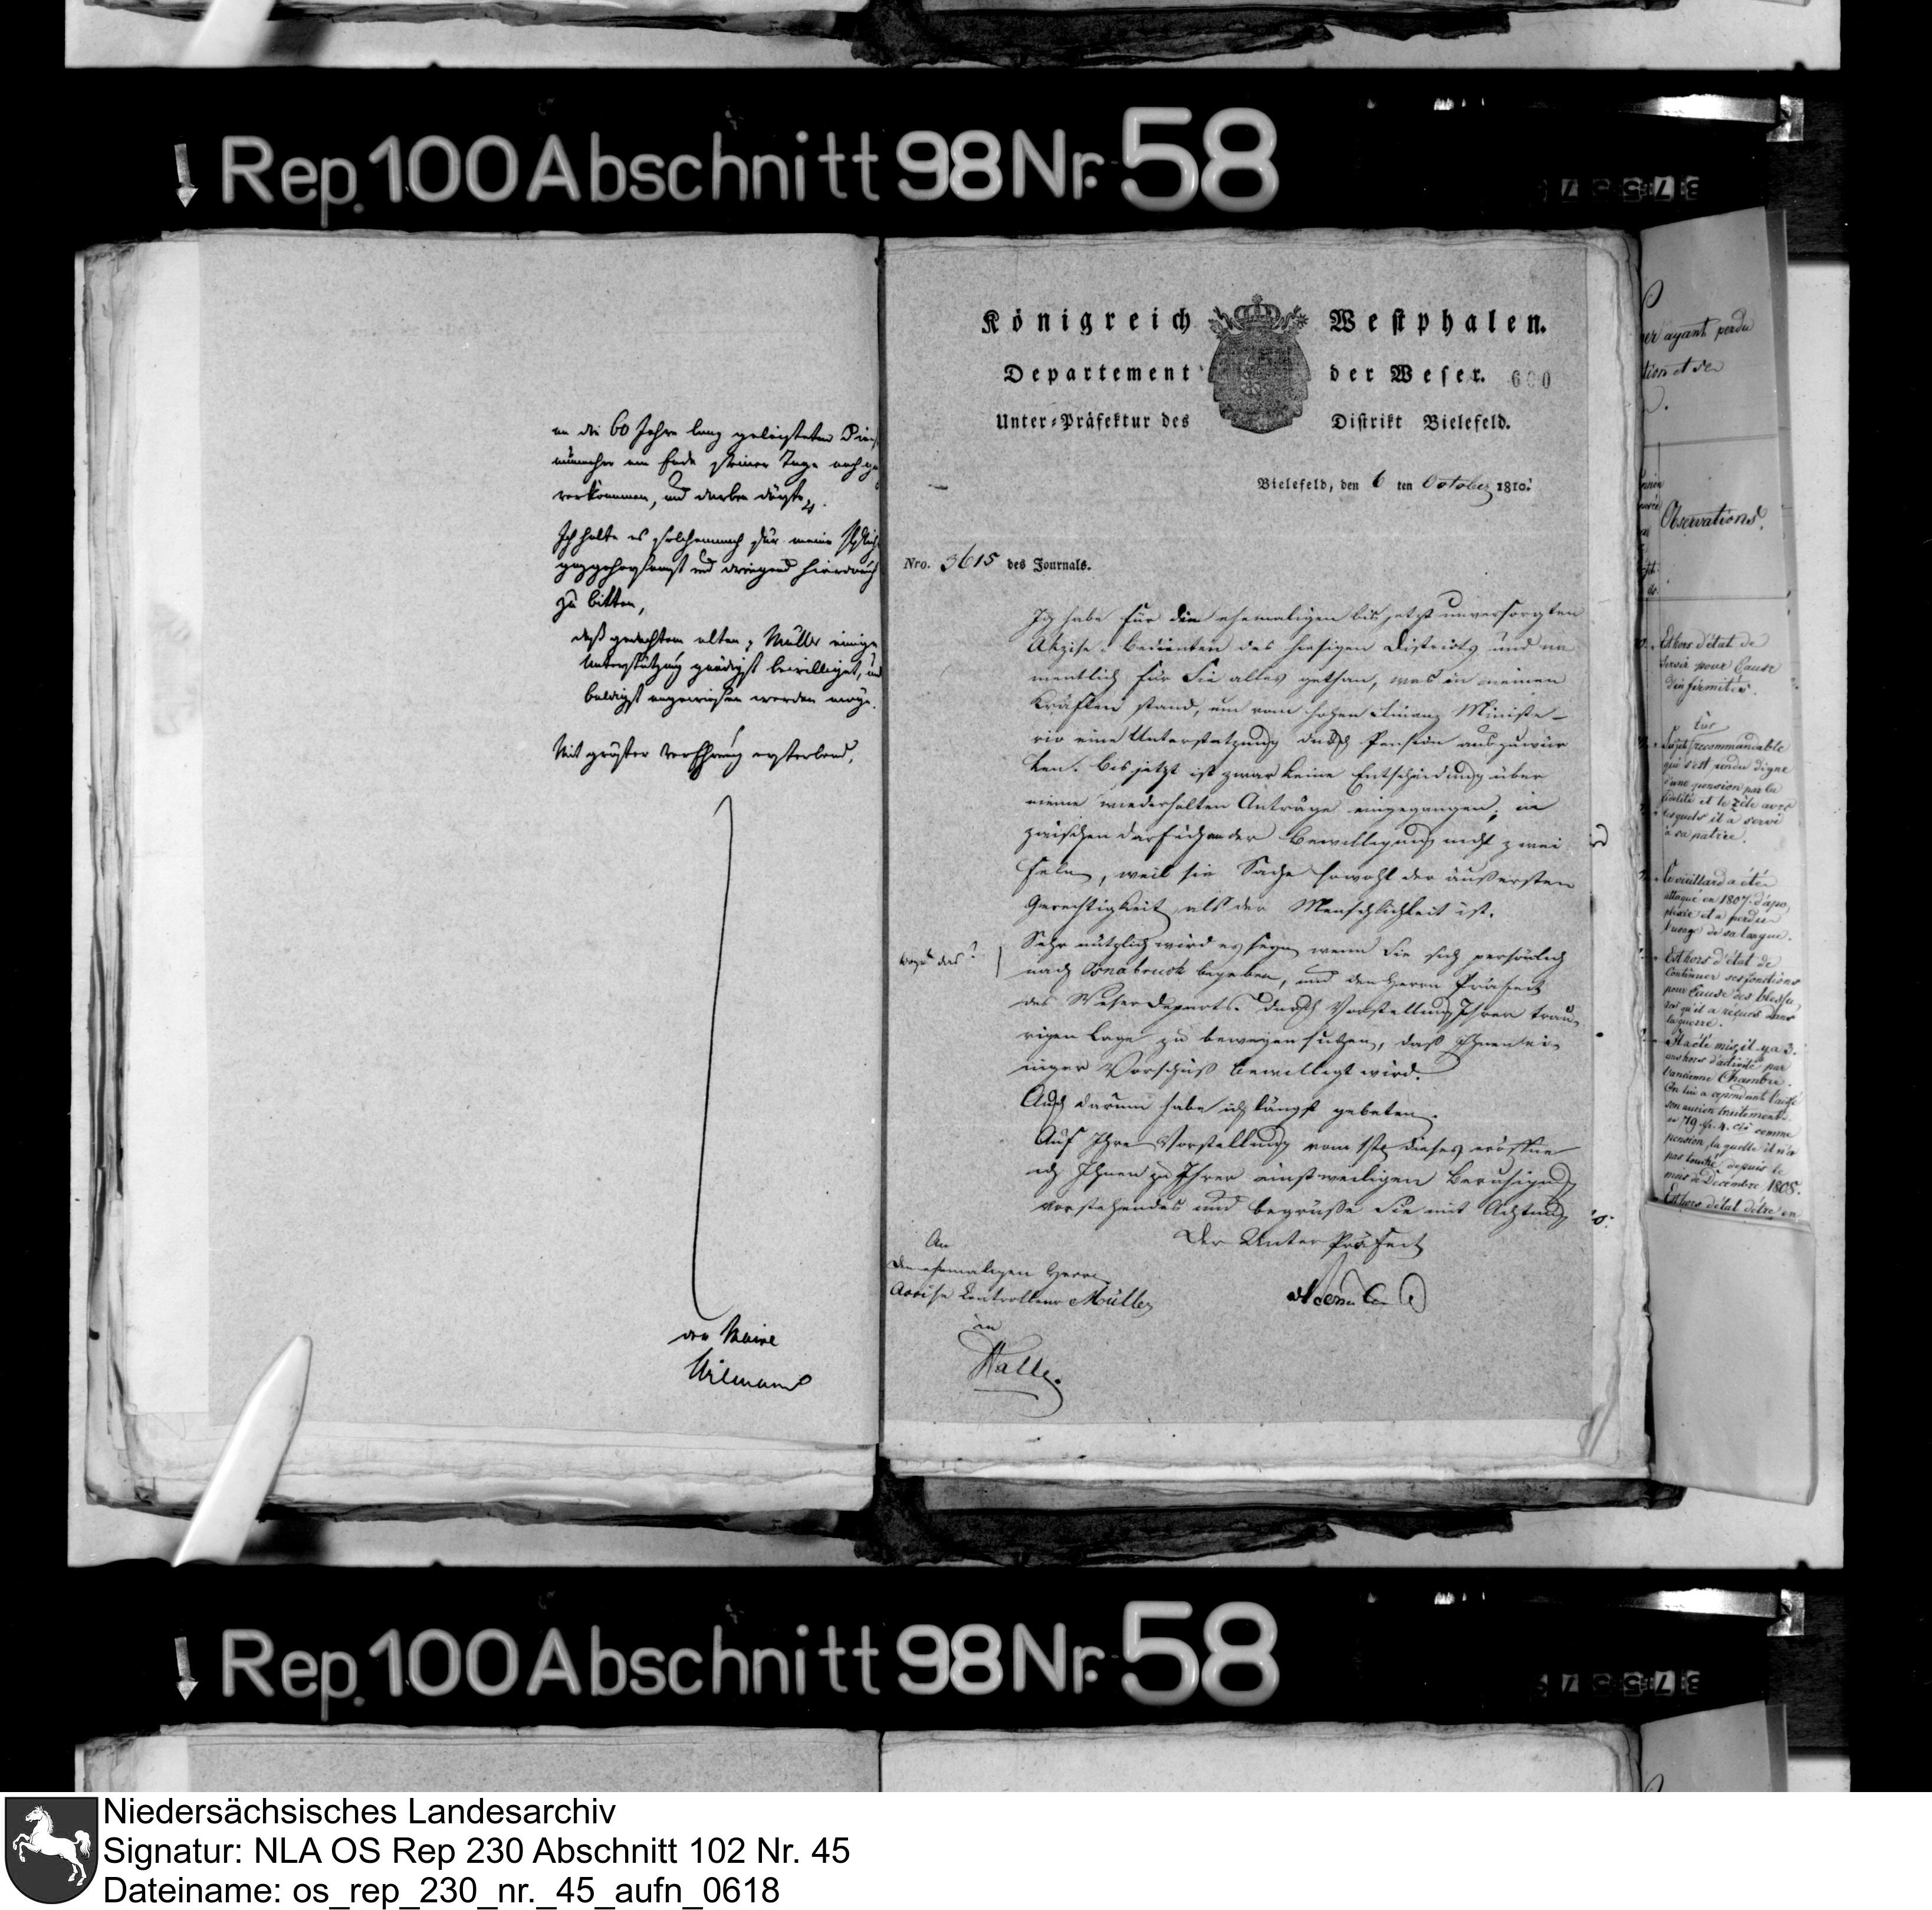 Rep. 100 Abschnitt 98 Nr. 58
an die 60 Jahre lang geleisteten
nunmehr am Ende seiner Tage noch
verkommen, und darben dürfte.
Ich halte es solchemnach für meine Pflicht
ganzgehorsamst und dringend hierdurch
zu bitten,
daß gedachtem alten p Müller einige
Unterstützung gnädigst bewilliget, und
baldigst angewiesen werden möge.
Mit größter Verehrung ersterbend,
der Maire
Wilmanns
Königreich Westphalen.
Departement der Weser. 600
Unter-Präfektur des Distrikt Bielefeld.
Bielefeld, den 6 ten October 1810.
Nro. 3615 des Journals.
Ich habe für die ehemaligen bis jetzt unversorgten
Akzise-Bedienten des hiesigen Districts und na
mentlich für Sie alles gethan, was in meinen
Kräften stand, um vom hohen Finanz Ministe-
rio eine Unterstützung durch Pension auszuwür
ken. Bis jetzt ist zwar keine Entscheidung über
meine wiederholten Anträge eingegangen; in
zwischen darf ich an der Bewilligung nicht zwei
feln, weil die Sache sowohl der äußersten
Gerechtigkeit als der Menschlichkeit ist.
Sehr nützlich wird es seyn wenn Sie sich persönlich
nach Osnabrück begeben, und den Herrn Präfect
des Weser Departs. durch Vorstellung Ihrer trau
rigen Lage zu bewegen suchen, daß Ihnen ei-
niger Vorschuß bewilligt wird.
Auch darum habe ich längst gebeten.
Auf Ihre Vorstellung vom 1ten dieses eröffne
ich Ihnen zu Ihrer einstweiligen Beruhigung
vorstehendes und begrüße Sie mit Achtung
Der Unter Präfect
An
den ehemaligen Herrn
Accise Controlleur Müller
in
Halle.
ayant perdu
Observations.
Est hors d'état de
servir pour cause
d'infirmités.
Sujet recommandable
qui s'est rendu digne
d'une pension par la
fidélité et le zèle avec
lesquels il a servi
à sa patrie.
Ce vieillard a été
attaqué en 1807 d'apo,
plexie et a perdu
l'usage de sa langue.
Est hors d'état de
continuer ses fonctions
pour cause des blessu,
res qu'il a reçues dans
la guerre.
Il a été mis, il y a 3
ans hors d'activité par
l'ancienne Chambre.
On lui a cependant laissé
son ancien traitement
de 719 fr. 4. c. comme
pension, laquelle il n'a
pas touché depuis le
mois de Décembre 1808.
Est hors d'état d'être en
Rep. 100 Abschnitt 98 Nr. 58
Niedersächsisches Landesarchiv
Signatur: NLA OS Rep 230 Abschnitt 102 Nr. 45
Dateiname: os_rep_230_nr._45_aufn_0618